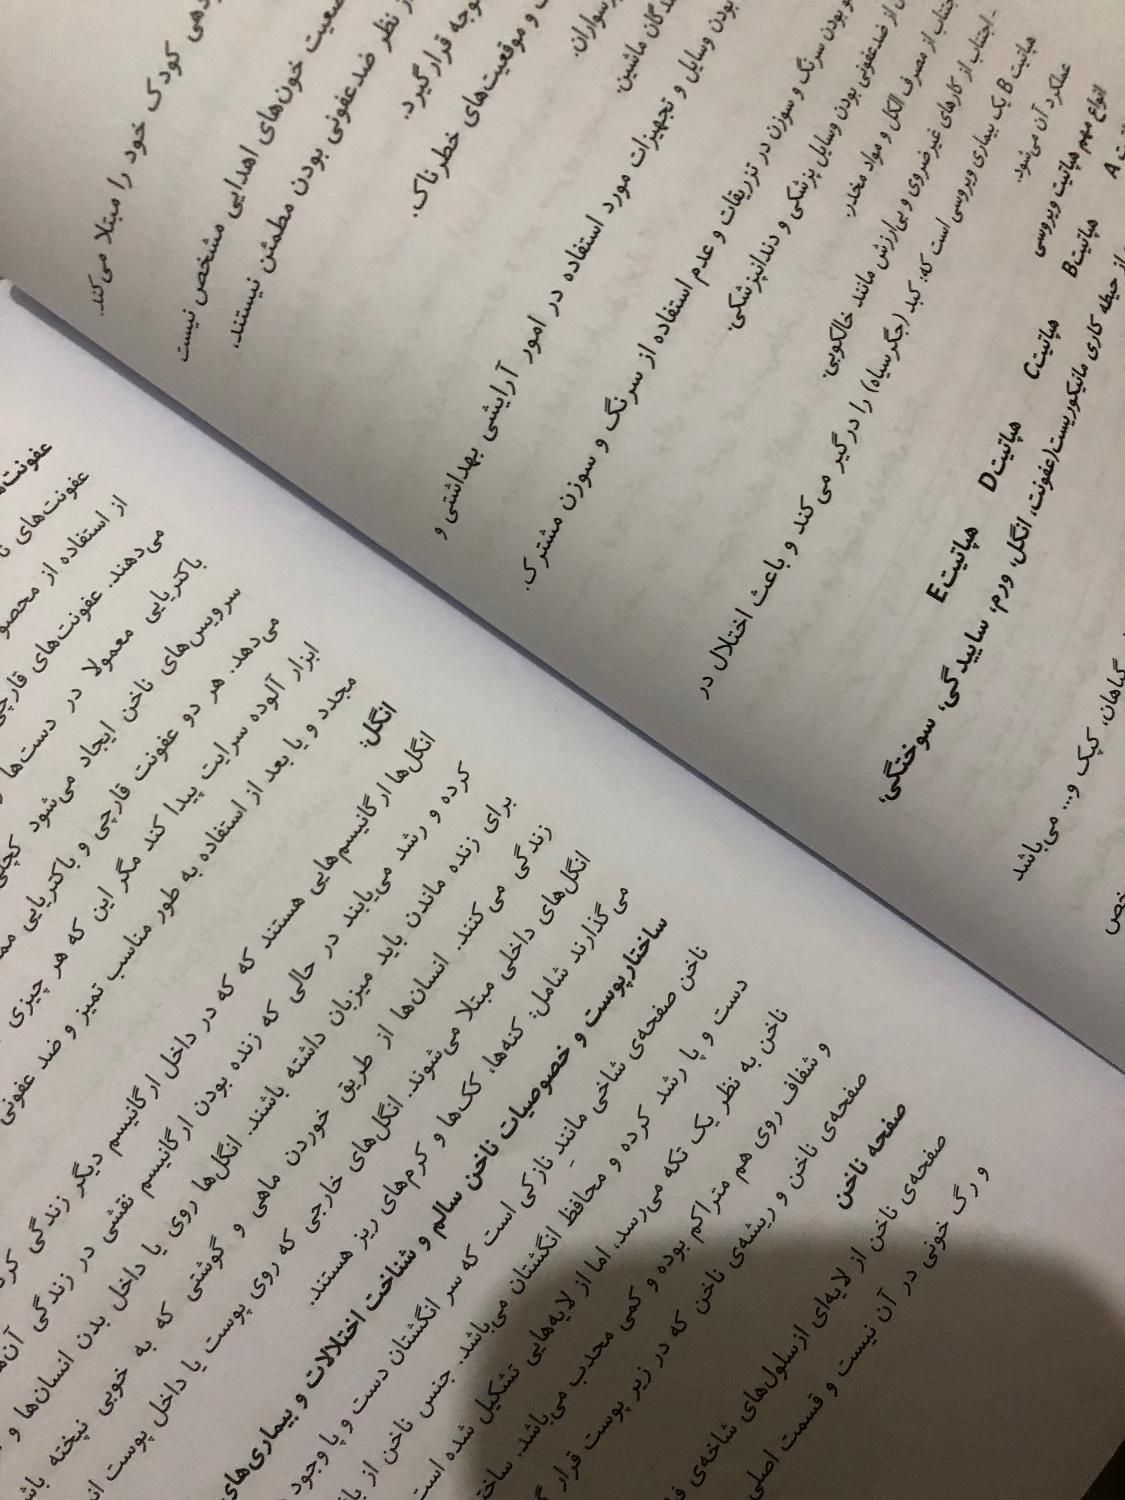 دهی کودک خود را مبتلا می‌کند.
ضعیت خون‌های اهدایی مشخص نیست
از نظر ضدعفونی بودن مطمئن نیستند.
توجه قرار گیرد.
و موقعیت‌های خطرناک.
رسواران.
ندگان ماشین.
بودن وسایل و تجهیزات مورد استفاده در امور آرایشی بهداشتی و
بودن سرنگ و سوزن در تزریقات و عدم استفاده از سرنگ و سوزن مشترک.
از ضدعفونی بودن وسایل پزشکی و دندانپزشکی.
جتناب از مصرف الکل و مواد مخدر.
- اجتناب از کارهای غیرضروی و بی‌ارزش مانند خالکوبی.
هپاتیت B یک بیماری ویروسی است که، کبد (جگر سیاه) را درگیر می کند و باعث اختلال در
عملکرد آن می‌شود.
انواع مهم هپاتیت ویروسی
A هپاتیتB هپاتیتC هپاتیتD هپاتیتE
از حیطه کاری مانیکوریست(عفونت، انگل، ورم، ساییدگی، سوختگی،
گیاهان، کپک و... می‌باشد
خص
عفونت‌ه
عفونت‌های
از استفاده از محصو
می‌دهند. عفونت‌های قارچی
باکتریایی معمولا در دست‌ها
سرویس‌های ناخن ایجاد می‌شود
می‌دهد. هر دو عفونت قارچی و باکتریایی
ابزار آلوده سرایت پیدا کند مگر این که هر چیزی
مجدد و یا بعد از استفاده به طور مناسب تمیز و ضد عفونی
انگل:
انگل‌ها ارگانیسم‌هایی هستند که که در داخل ارگانیسم دیگر زندگی
کرده و رشد می‌یابند در حالی که زنده بودن ارگانیسم نقشی در زندگی آن‌ها
برای زنده ماندن باید میزبان داشته باشند. انگل‌ها روی یا داخل بدن انسان‌ها و
زندگی می کنند. انسان‌ها از طریق خوردن ماهی و گوشتی که به خوبی نپخته
انگل‌های داخلی مبتلا می‌شوند. انگل‌های خارجی که روی پوست یا داخل پوست
می گذارند شامل: کنه‌ها، کک‌ها و کرم‌های ریز هستند.
ساختار پوست و خصوصیات ناخن سالم و شناخت اختلالات و بیماری‌های
ناخن صفحه‌ی شاخی مانندِ نازکی است که سر انگشتان دست و پا وجود
دست و پا رشد کرده و محافظ انگشتان می‌باشد. جنس ناخن از
ناخن به نظر یک تکه می‌رسد، اما از لایه‌هایی تشکیل شده است
و شفاف روی هم متراکم بوده و کمی محدب می‌باشد.
صفحه‌ی ناخن و ریشه‌ی ناخن که در زیر پوست قرار
صفحه ناخن
صفحه‌ی ناخن از لایه‌ای ازسلول‌های شاخه‌ی
و رگ خونی در آن نیست و قسمت اصلی